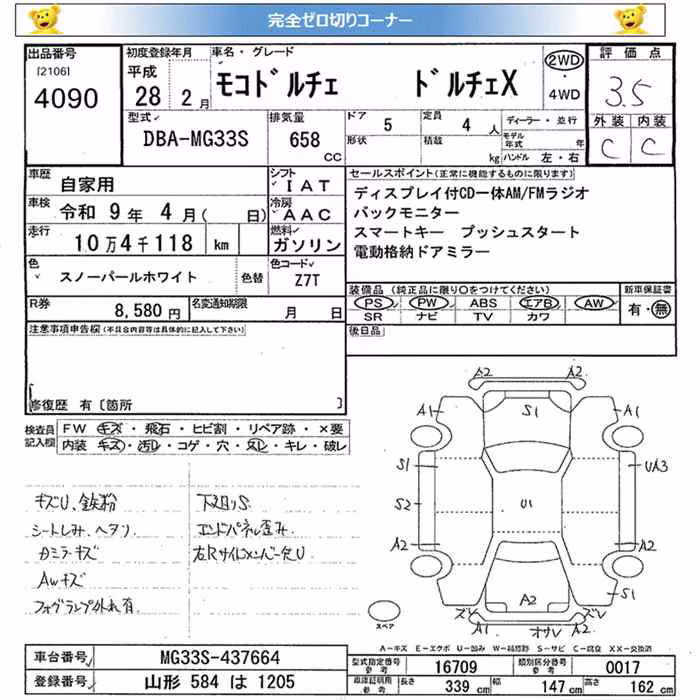 完全ゼロ切りコーナー
出品番号
[2106]
4090
初度登録年月
平成
28 2 月
車名・グレード
モコドルチェ ドルチェX
2WD
・
4WD
評価点
3.5
外装 内装
C C
型式
DBA-MG33S
排気量
658
CC
ドア
5
形状
定員
4 人
積載
kg
ディーラー・並行
モデル年式 年
ハンドル 左・右
車歴
自家用
シフト
IAT
車検
令和 9 年 4 月 ( 日)
冷房
AAC
走行
10万4千118 km
燃料
ガソリン
色
スノーパールホワイト
色替
色コード
Z7T
R券
8,580 円
名変通知期限
月 日
セールスポイント(正常に機能するものに限ります)
ディスプレイ付CD一体AM/FMラジオ
バックモニター
スマートキー プッシュスタート
電動格納ドアミラー
装備品 (純正品に限り○をつけてください)
PS PW ABS エアB AW
SR ナビ TV カワ
新車保証書
有・無
後日品
注意事項申告欄(不具合内容等は具体的に記入して下さい)
修復歴 有〔箇所 〕
検査員記入欄
FW キズ・飛石・ヒビ割・リペア跡・×要
内装 キズ・汚レ・コゲ・穴・スレ・キレ・破レ
キズU、鉄粉
シートしみ、ヘタリ
カミラーキズ
Awキズ
フォグランプ外れ有
下廻りS
エンドパネル歪み
左Rサイドメンバー欠U
A2 A2
A1 S1 A1
S1 UA3
S2 U1
A2 A2
A2 S1
ズレ ズレ
A1 オサレ A2
スペア
A-キズ E-エクボ U-凹み W-補修跡 S-サビ C-腐食 XX-交換済
車台番号
MG33S-437664
登録番号
山形 584 は 1205
型式指定番号
参考
16709
類別区分番号
参考
0017
車庫証明用
参考
長さ
339 cm
幅
147 cm
高さ
162 cm